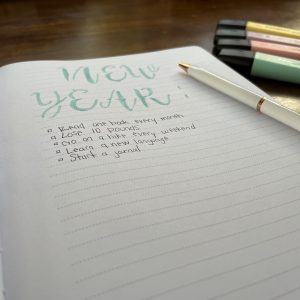 NEW
YEAR!
Read one book every month
Lose 10 pounds
Go on a hike every weekend
Learn a new language
Start a journal